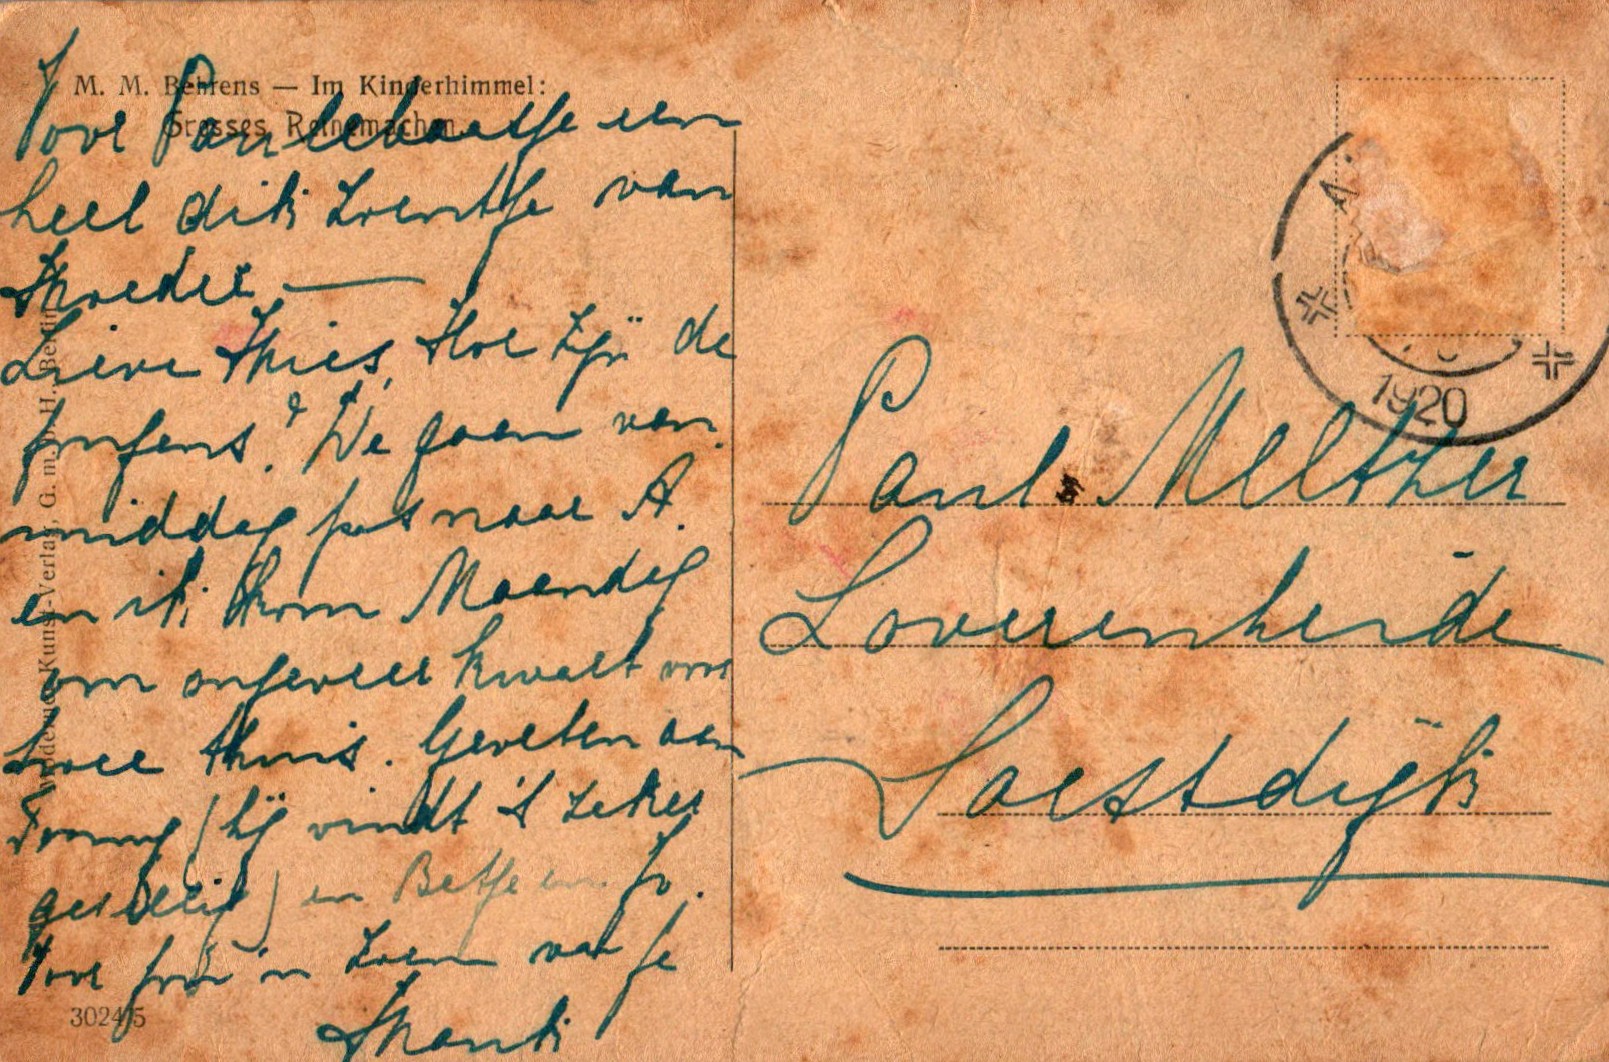 M. M. Behrens — Im Kinderhimmel:
Grosses Reinemachen.
Voor Paulebaasje een
heel dik zoentje van
Moeder —
Lieve Thies, Hoe zijn de
jongens? We gaan van
middag pas naar A.
en ik kom Maandag
om ongeveer kwart voor
twee thuis. Groeten aan
Franny (hij vindt 't zeker
gezellig) en Betje en Jo.
Voor jou 'n zoen van je
Moderner Kunst-Verlag, G. m. b. H., Berlin
30245
1920
Paul Meltzer
Loverenheide
Soestdijk